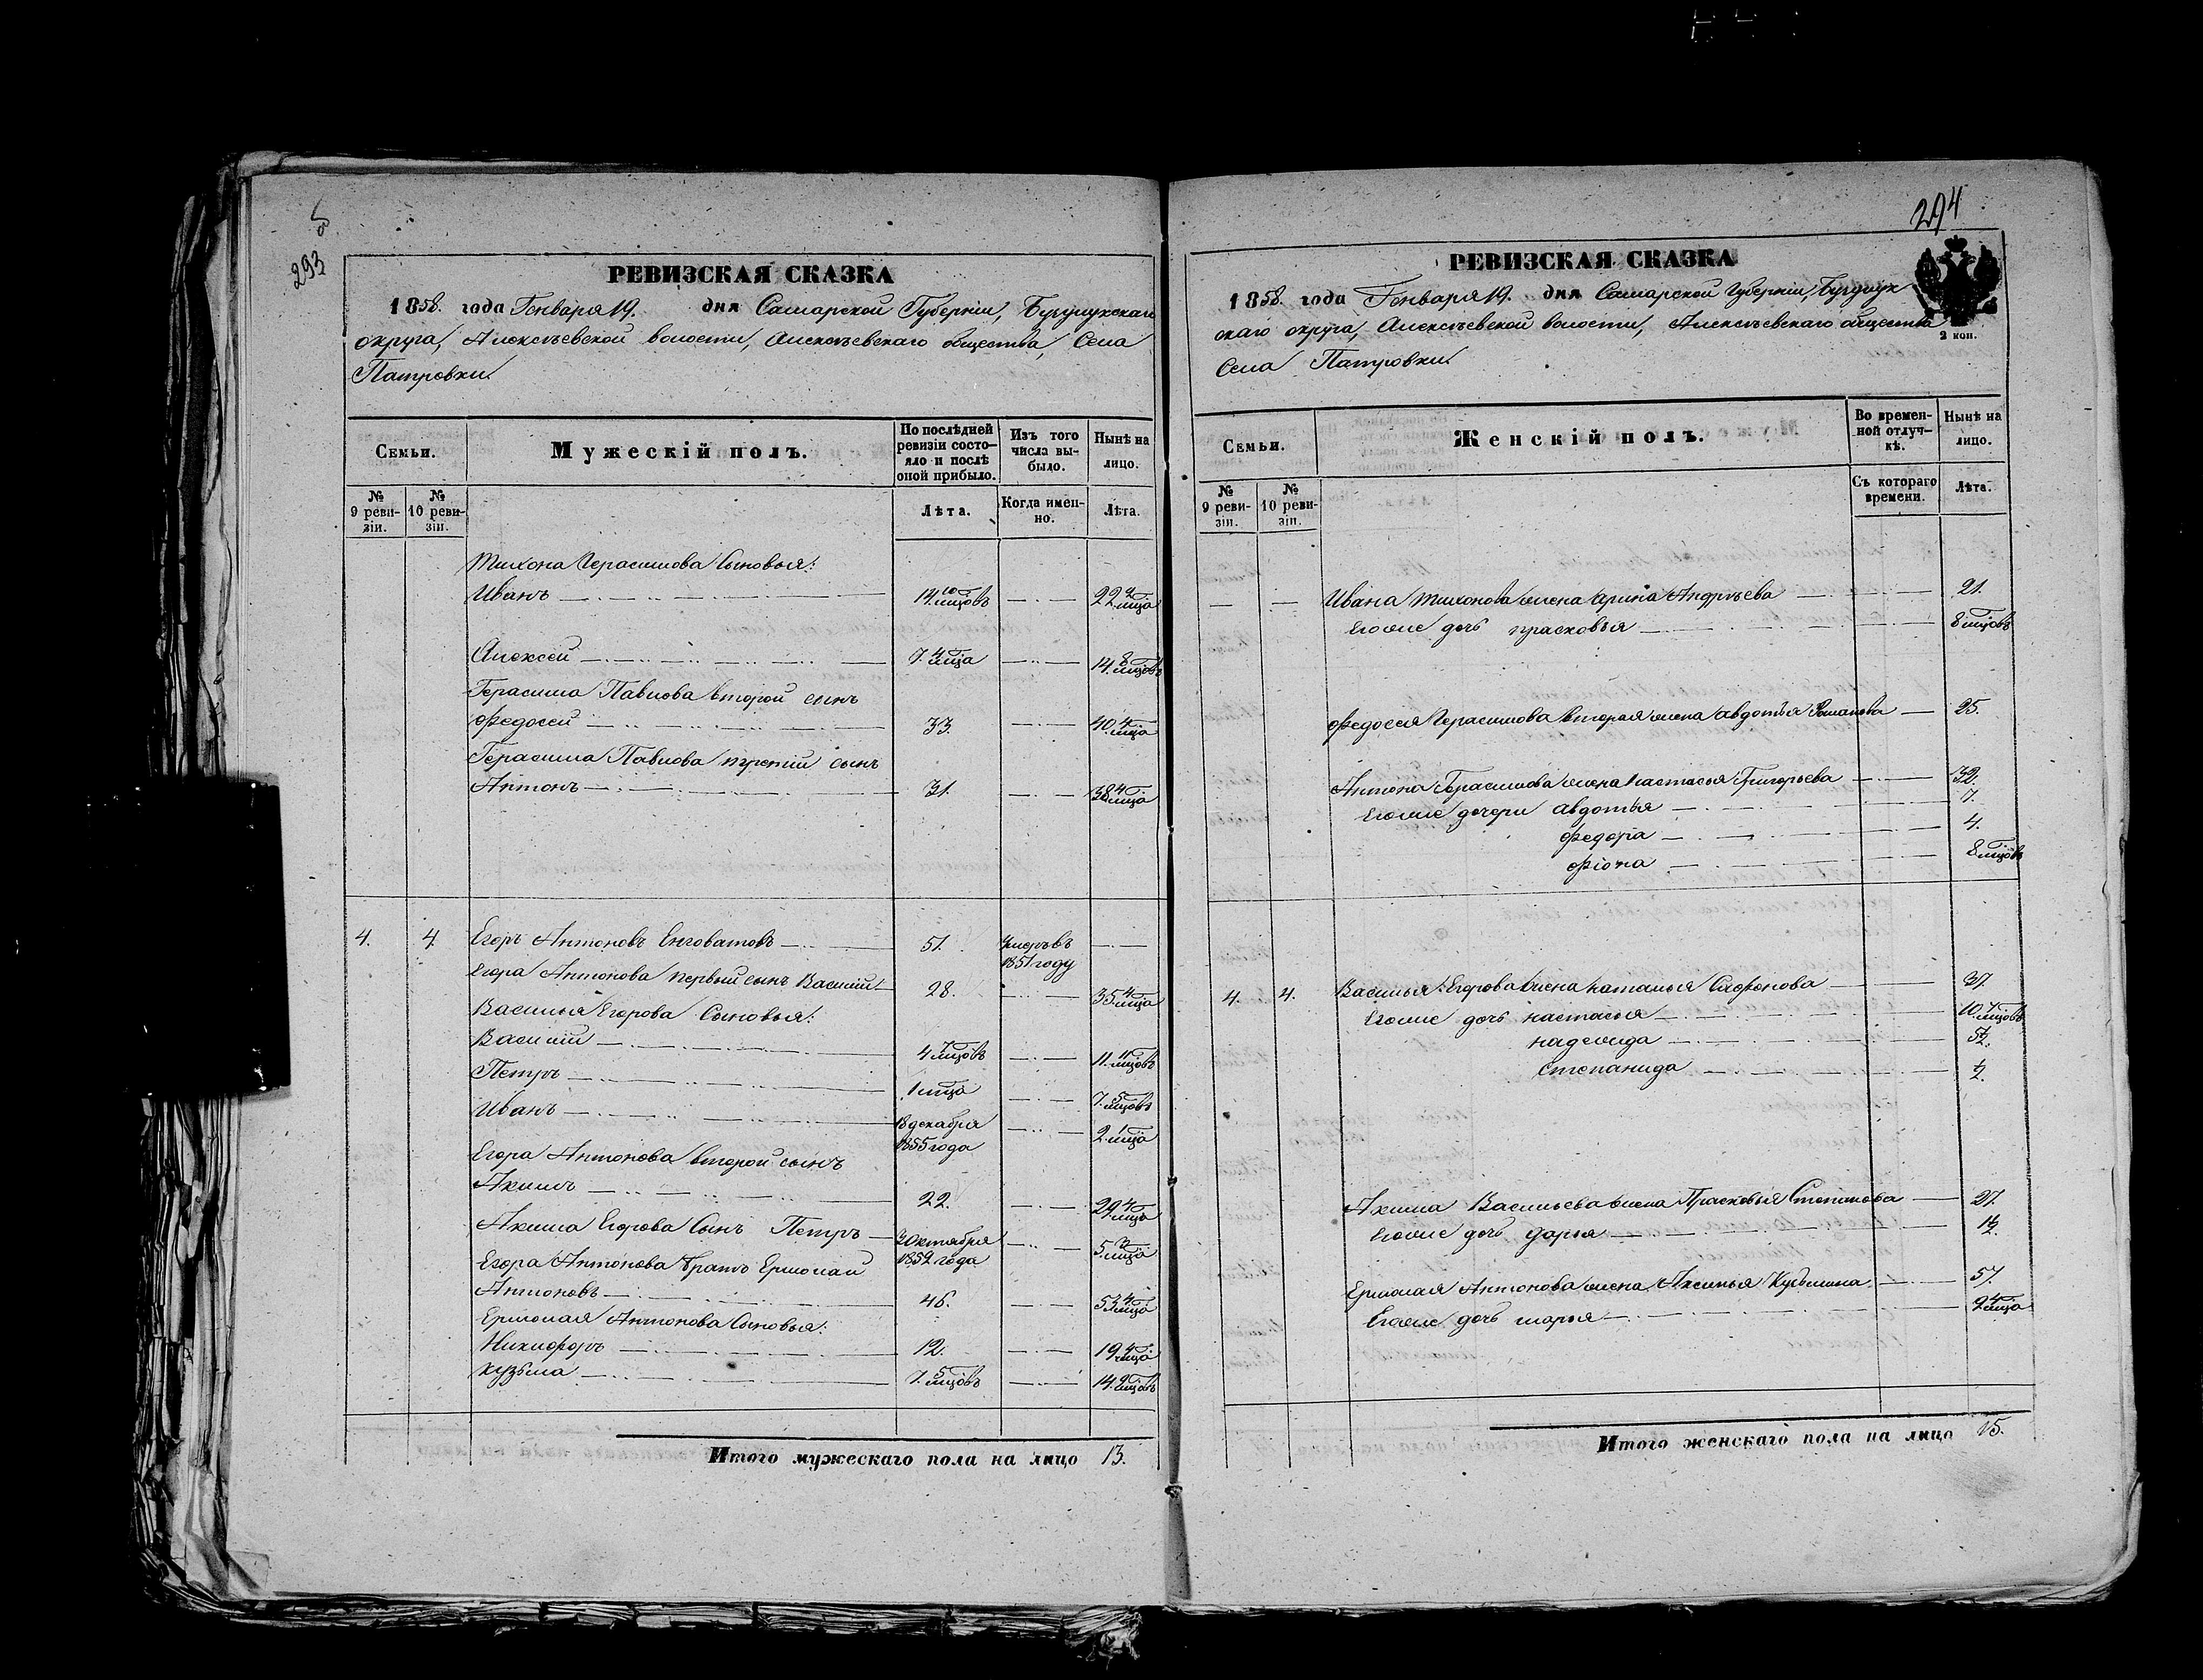 293
РЕВИЗСКАЯ СКАЗКА
1858. года Генваря 19. дня Самарской Губерніи, Бузулукскаго
округа, Алексѣевской волости, Алексѣевскаго общества, Села
Патровки.
Семьи.
Мужескій полъ.
По послѣдней ревизіи состояло и послѣ оной прибыло.
Изъ того числа выбыло.
Нынѣ на лицо.
№ 9 ревизіи.
№ 10 ревизіи.
Лѣта.
Когда именно.
Лѣта.
Тихона Герасимова Сыновья:
Иванъ 14. 10 мцовъ 22 4 мца
Алексей 7. 4 мца 14. 8 мцовъ
Герасима Павлова второй сынъ
Федосей 33. 40. 4 мца
Герасима Павлова третій сынъ
Антонъ 31. 38 4 мца
4. 4. Егоръ Антоновъ Енговатовъ 51. умеръ въ 1851 году
Егора Антонова первый сынъ Василій 28. 35 4 мца
Василья Егорова Сыновья:
Василій 4 7 мцовъ 11. 11 мцовъ
Петръ 1 мца 7. 5 мцовъ
Иванъ 18 декабря 1855 года 2. 1 мца
Егора Антонова второй сынъ
Акимъ 22. 29 4 мца
Акима Егорова Сынъ Петръ Октября 1852 года 5. 3 мца
Егора Антонова братъ Ермолай
Антоновъ 46. 53 4 мца
Ермолая Антонова Сыновья:
Никифоръ 12. 19 4 мца
Кузьма 7. 5 мцовъ 14. 9 мцовъ
Итого мужескаго пола на лицо 13.
294
РЕВИЗСКАЯ СКАЗКА
1858. года Генваря 19. дня Самарской Губерніи, Бузулук
скаго округа, Алексѣевской волости, Алексѣевскаго общества
2 коп.
Села Патровки.
Семьи.
Женскій полъ.
Во временной отлучкѣ.
Нынѣ на лицо.
№ 9 ревизіи.
№ 10 ревизіи.
Съ котораго времени.
Лѣта.
Ивана Тихонова жена Арина Андреева 21.
Егоже дочь Прасковья 8 мцовъ
Федосея Герасимова вторая жена Авдотья Романова 25.
Антона Герасимова жена Настасья Григорьева 32.
Егоже дочери Авдотья 7.
Федора 4.
Фіона 8 мцовъ
4. 4. Василья Егорова жена Наталья Сафонова 37.
Егоже дочь Настасья 10. 4 мцовъ
Надежда 5½.
Степанида ½.
Акима Васильева жена Прасковья Степанова 27.
Егоже дочь Дарья 1½.
Ермолая Антонова жена Аксинья Кузьмина 57.
Егоже дочь Марья 9 4 мца
Итого женскаго пола на лицо 15.